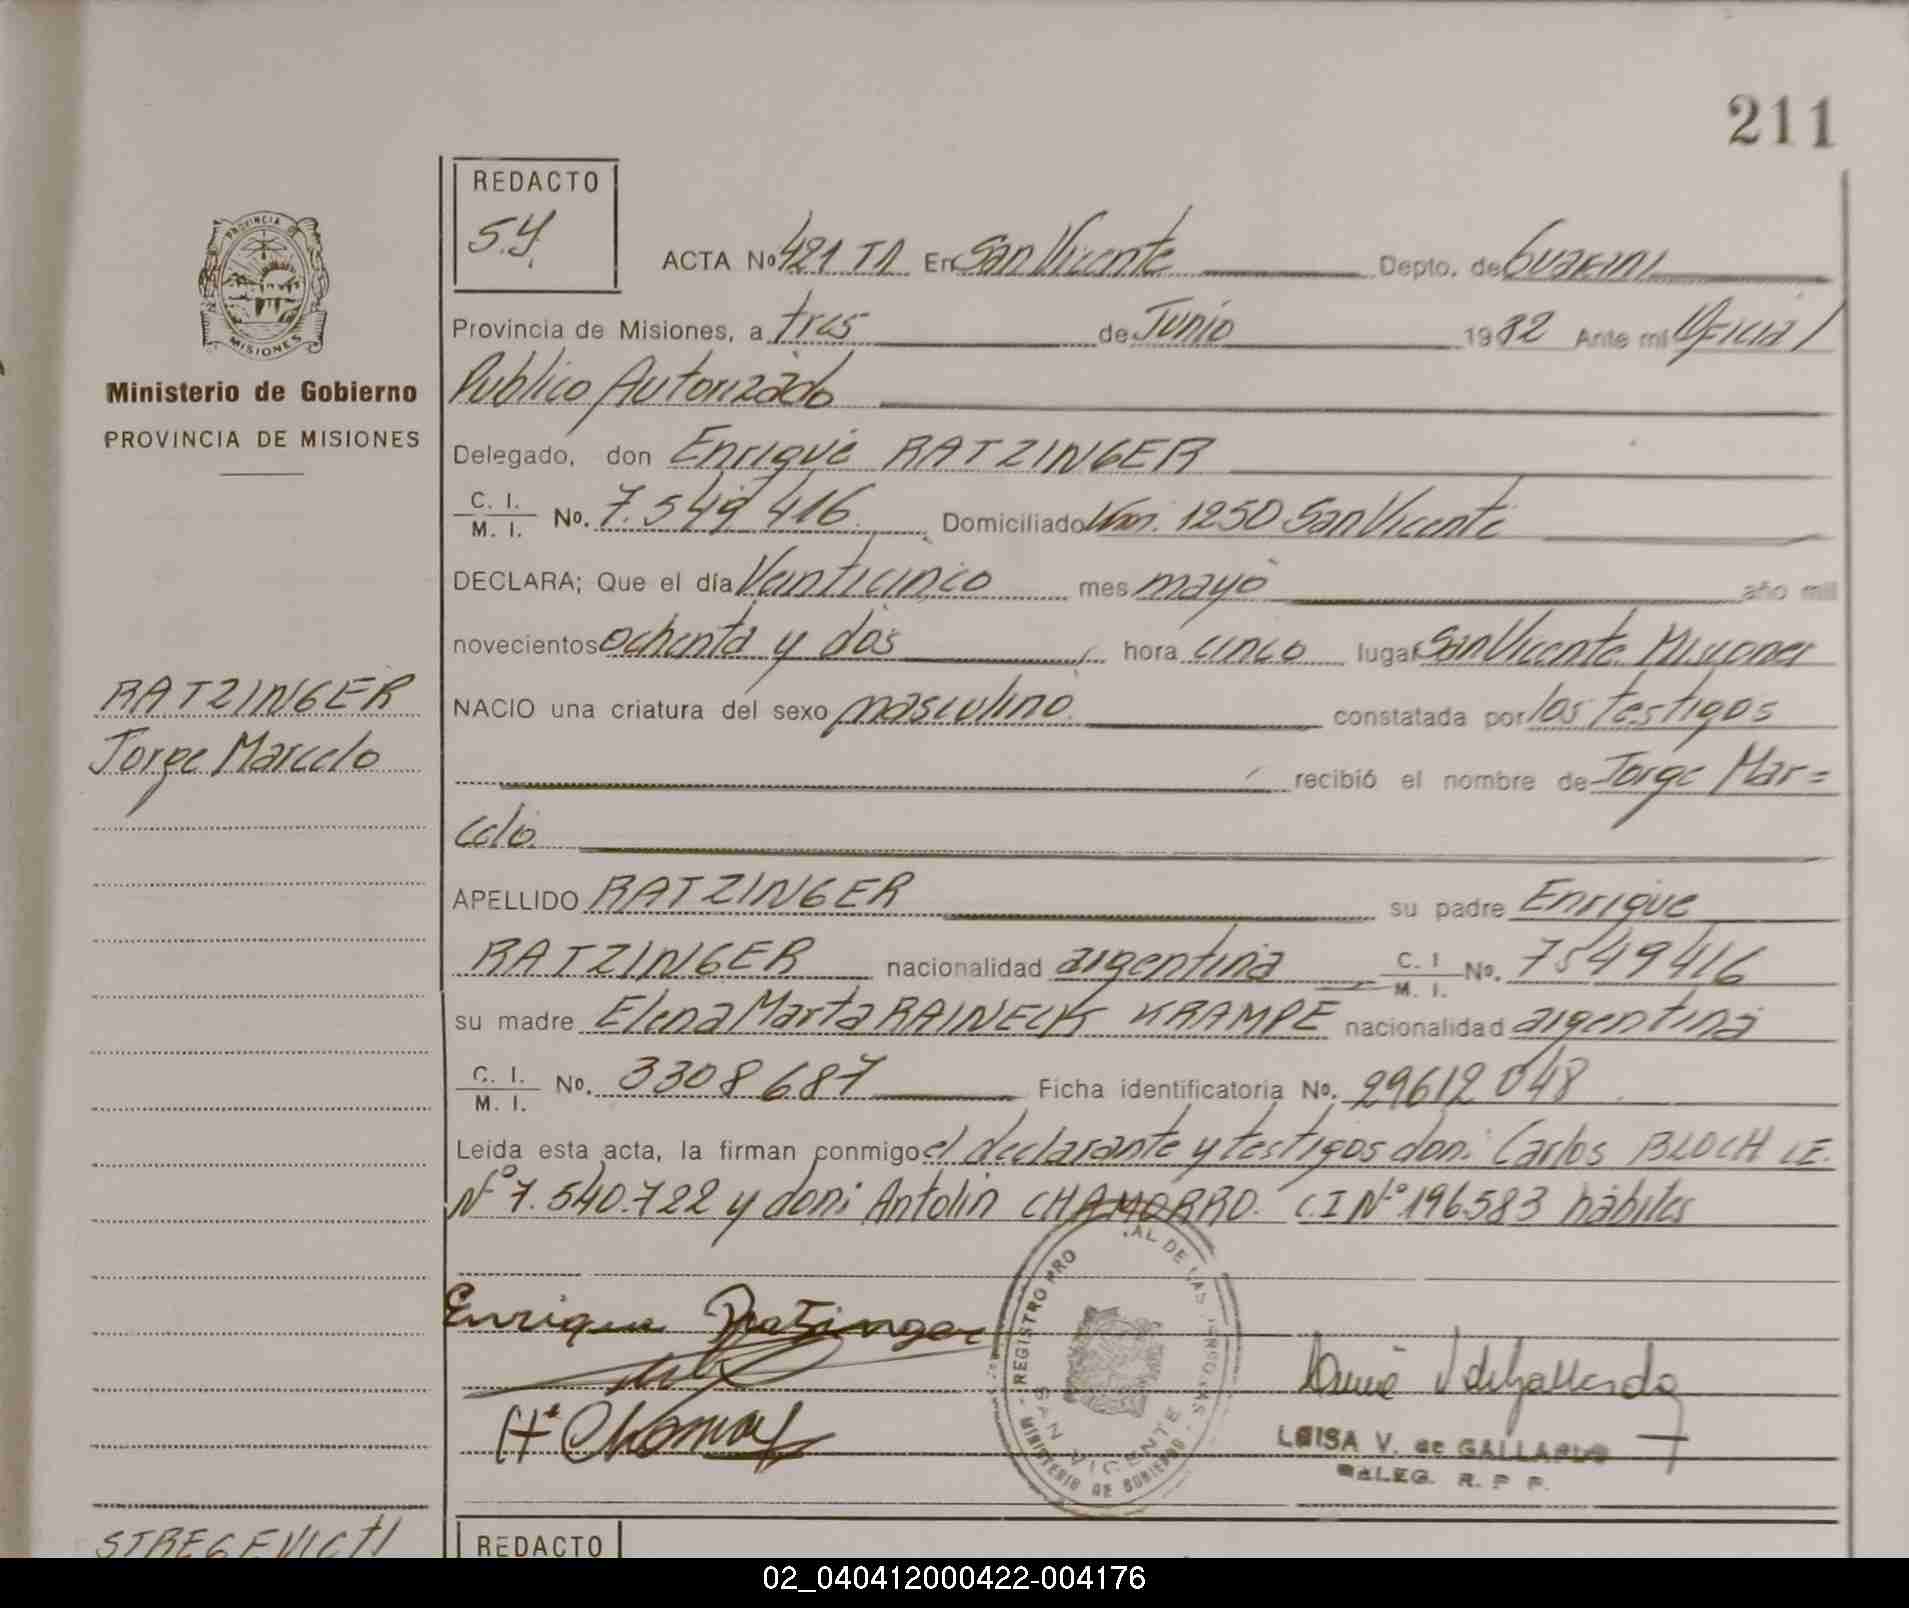 211
REDACTO
S.Y.
ACTA No. 421 TA En San Vicente Depto. de Guarani
Provincia de Misiones, a tres de Junio 1982 Ante mi Oficial
Publico Autorizado
Delegado, don Enrique RATZINGER
C. I. M. I. No. 7.549 416 Domiciliado Km. 1250 San Vicente
DECLARA; Que el día Veinticinco mes mayo año mil
novecientos ochenta y dos hora cinco lugar San Vicente Misiones
NACIO una criatura del sexo masculino constatada por los testigos
recibió el nombre de Jorge Mar=
celo.
APELLIDO RATZINGER su padre Enrique
RATZINGER nacionalidad argentina C. I M. I. No. 7549416
su madre Elena Marta RAINECK KRAMPE nacionalidad argentina
C. I. M. I. No. 3308687 Ficha identificatoria No. 29612048
Leída esta acta, la firman conmigo el declarante y testigos don: Carlos BLOCH LE.
Nº 7.540.722 y don: Antolin CHAMORRO. C.I Nº 196.583 hábiles
Enrique Ratzinger
REGISTRO PRO AL DE LAS PERSONAS
SAN VICENTE
MINISTERIO DE GOBIERNO
LUISA V. de GALLARDO
DELEG. R. P. P.
PROVINCIA DE
MISIONES
Ministerio de Gobierno
PROVINCIA DE MISIONES
RATZINGER
Jorge Marcelo
REDACTO
02_040412000422-004176